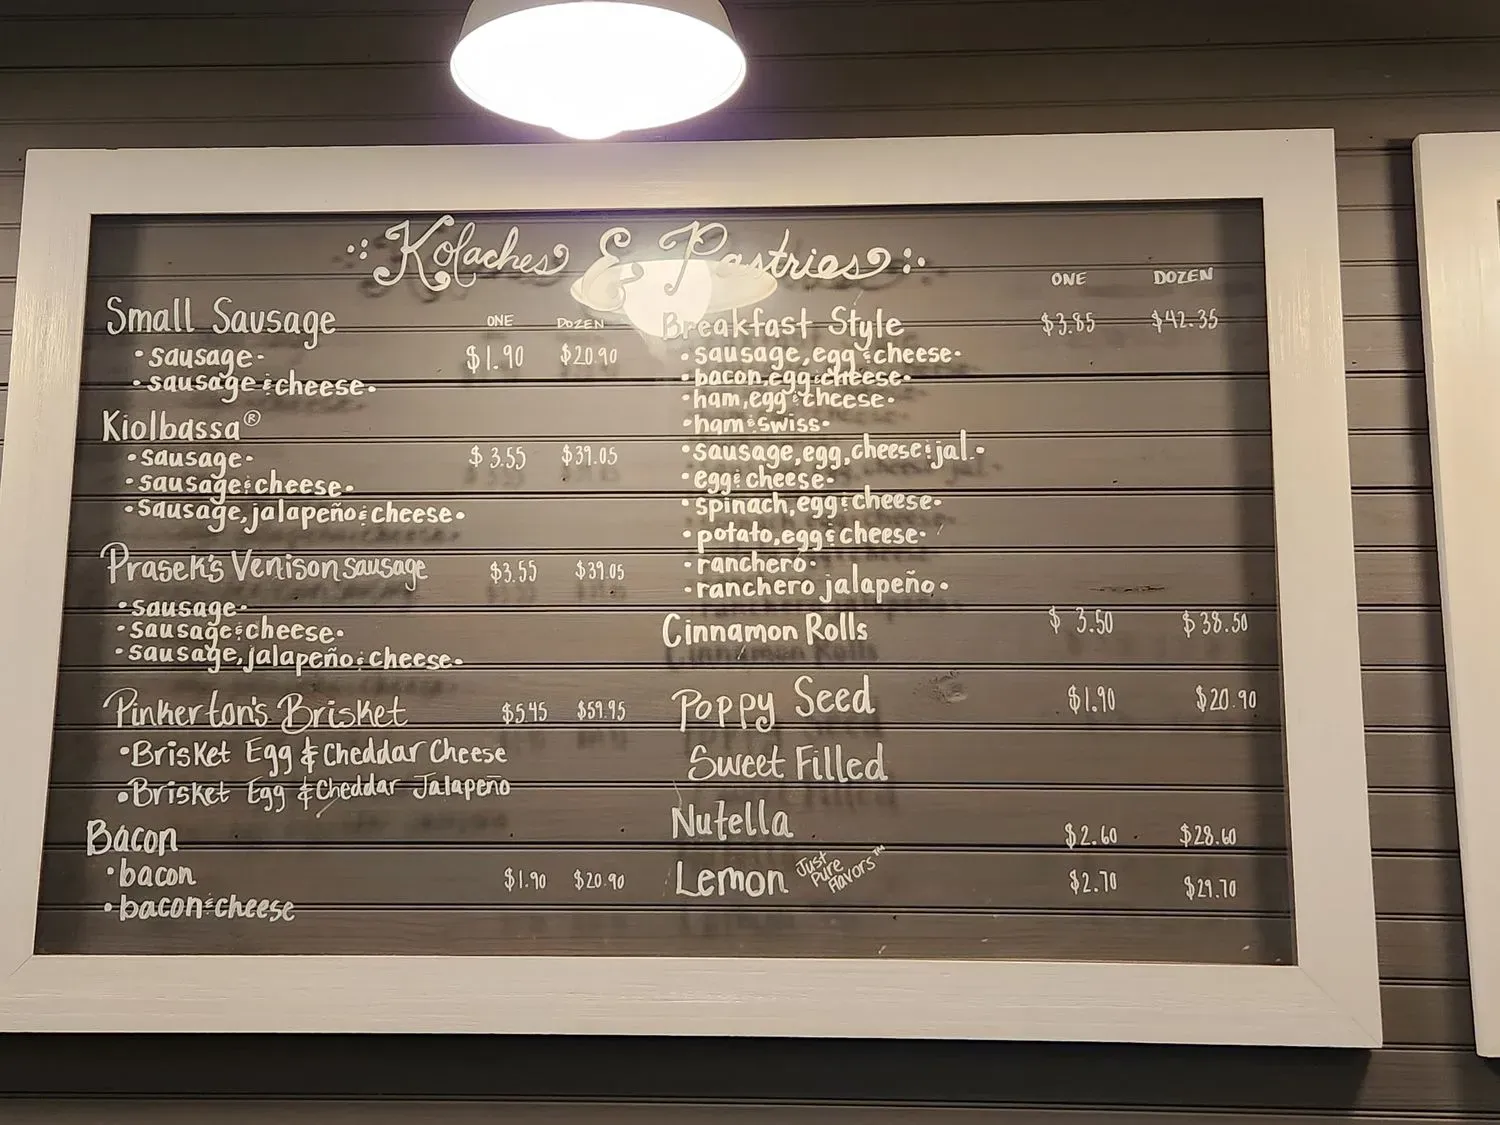 Kolaches & Pastries
ONE DOZEN
Small Sausage
• sausage • $1.90 $20.90
• sausage & cheese •
Kiolbassa®
• sausage • $3.55 $39.05
• sausage & cheese •
• sausage, jalapeño & cheese •
Prasek's Venison sausage $3.55 $39.05
• sausage •
• sausage & cheese •
• sausage, jalapeño & cheese •
Pinkerton's Brisket $5.45 $59.95
• Brisket Egg & Cheddar Cheese
• Brisket Egg & Cheddar Jalapeño
Bacon
• bacon $1.90 $20.90
• bacon & cheese
ONE DOZEN
Breakfast Style $3.85 $42.35
• sausage, egg & cheese •
• bacon, egg & cheese •
• ham, egg & cheese •
• ham & swiss •
• sausage, egg, cheese & jal. •
• egg & cheese •
• spinach, egg & cheese •
• potato, egg & cheese •
• ranchero •
• ranchero jalapeño •
Cinnamon Rolls $3.50 $38.50
Poppy Seed $1.90 $20.90
Sweet Filled
Nutella $2.60 $28.60
Lemon Just Pure Flavors™ $2.70 $29.70